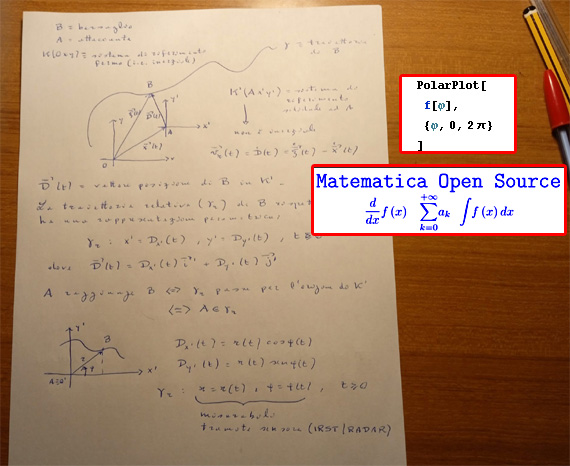 B = bersaglio
A = attaccante
K(Oxy) ≡ sistema di riferimento
fermo (i.e. inerziale)
γ ≡ traiettoria
di B
B
K'(Ax'y') = sistema di
riferimento
solidale ad A
y
y'
A
x'
O
non è inerziale
D'(t) = vettore posizione di B in K'.
La traiettoria relativa (γ₂) di B
ha una rappresentazione parametrica:
γ₂ : x' = Dx'(t) , y' = Dy'(t) , t ≥
dove D'(t) = Dx'(t) i' + Dy'(t) j'
A raggiunge B <=> γ₂ passa per l'origine di K'
<=> A ∈ γ₂
y'
B
A≡O'
x'
Dx'(t) = r(t) cos φ(t)
Dy'(t) = r(t) sin φ(t)
γ₂ : r = r(t) , φ = φ(t) , t ≥ 0
misurabili
tramite sensore (IRST/RADAR)
PolarPlot[
f[φ],
{φ, 0, 2 π}
]
Matematica Open Source
d/dx f(x) ∑_{k=0}^{+∞} a_k ∫ f(x) dx